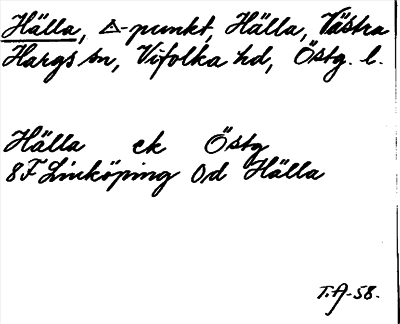 Hälla, △-punkt, Hälla, Västra
Hargs sn, Vifolka hd, Östg. l.
Hälla ek Östg
8F Linköping 0d Hälla
T.A-58.